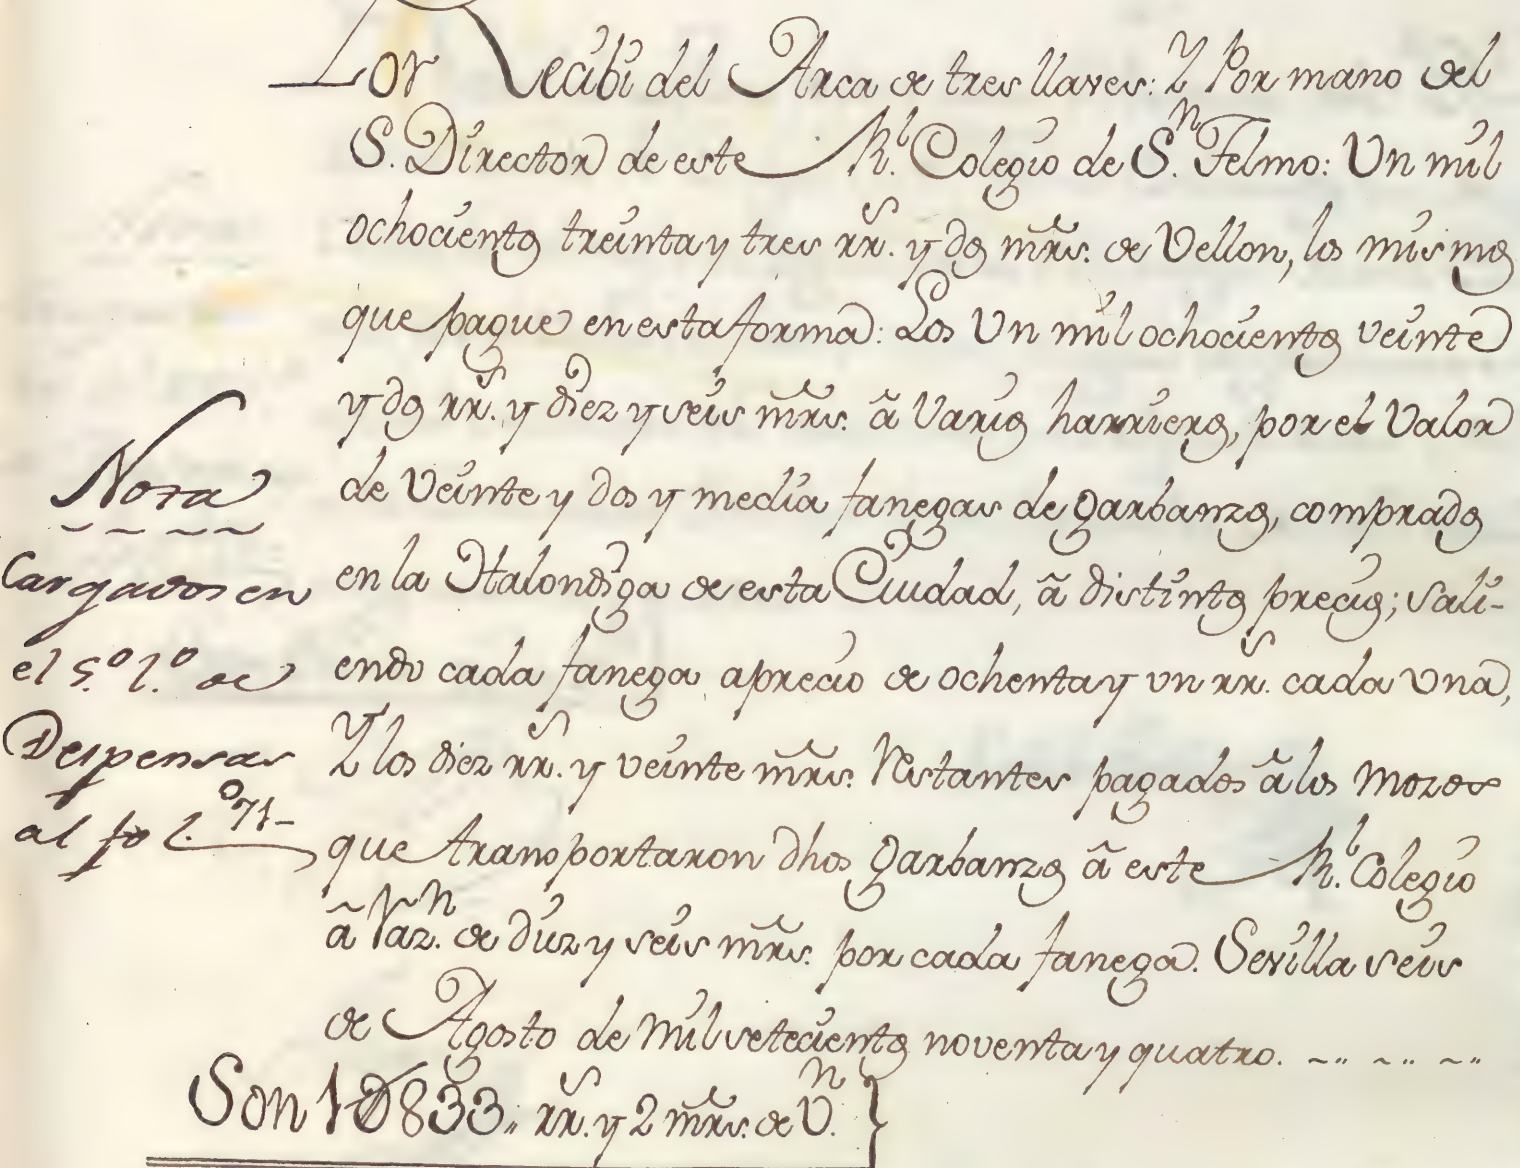 Por Recibi del Arca de tres llaves: Y Por mano del
S. Director de este Rl. Colegio de Sn. Telmo: Un mil
ochocientos treinta y tres rrs. y dos mrs. de Vellon, los mismos
que pague en esta forma: Los Un mil ochocientos veinte
y dos rrs. y diez y seis mrs. â Varios harrieros, por el Valor
de Veinte y dos y media fanegas de garbanzos, comprados
en la Halondiga de esta Ciudad, â distintos precios; sali-
endo cada fanega a precio de ochenta y un rrs. cada Una,
Y los diez rrs. y veinte mrs. Restantes pagados â los Mozos
que transportaron dhos garbanzos â este Rl. Colegio
â Razn. de diez y seis mrs. por cada fanega. Sevilla seis
de Agosto de Mil setecientos noventa y quatro.
Son 1833,, rrs. y 2 mrs. de Vn.
Nota
Cargados en
el 5º lº de
Despensas
al folº 71-